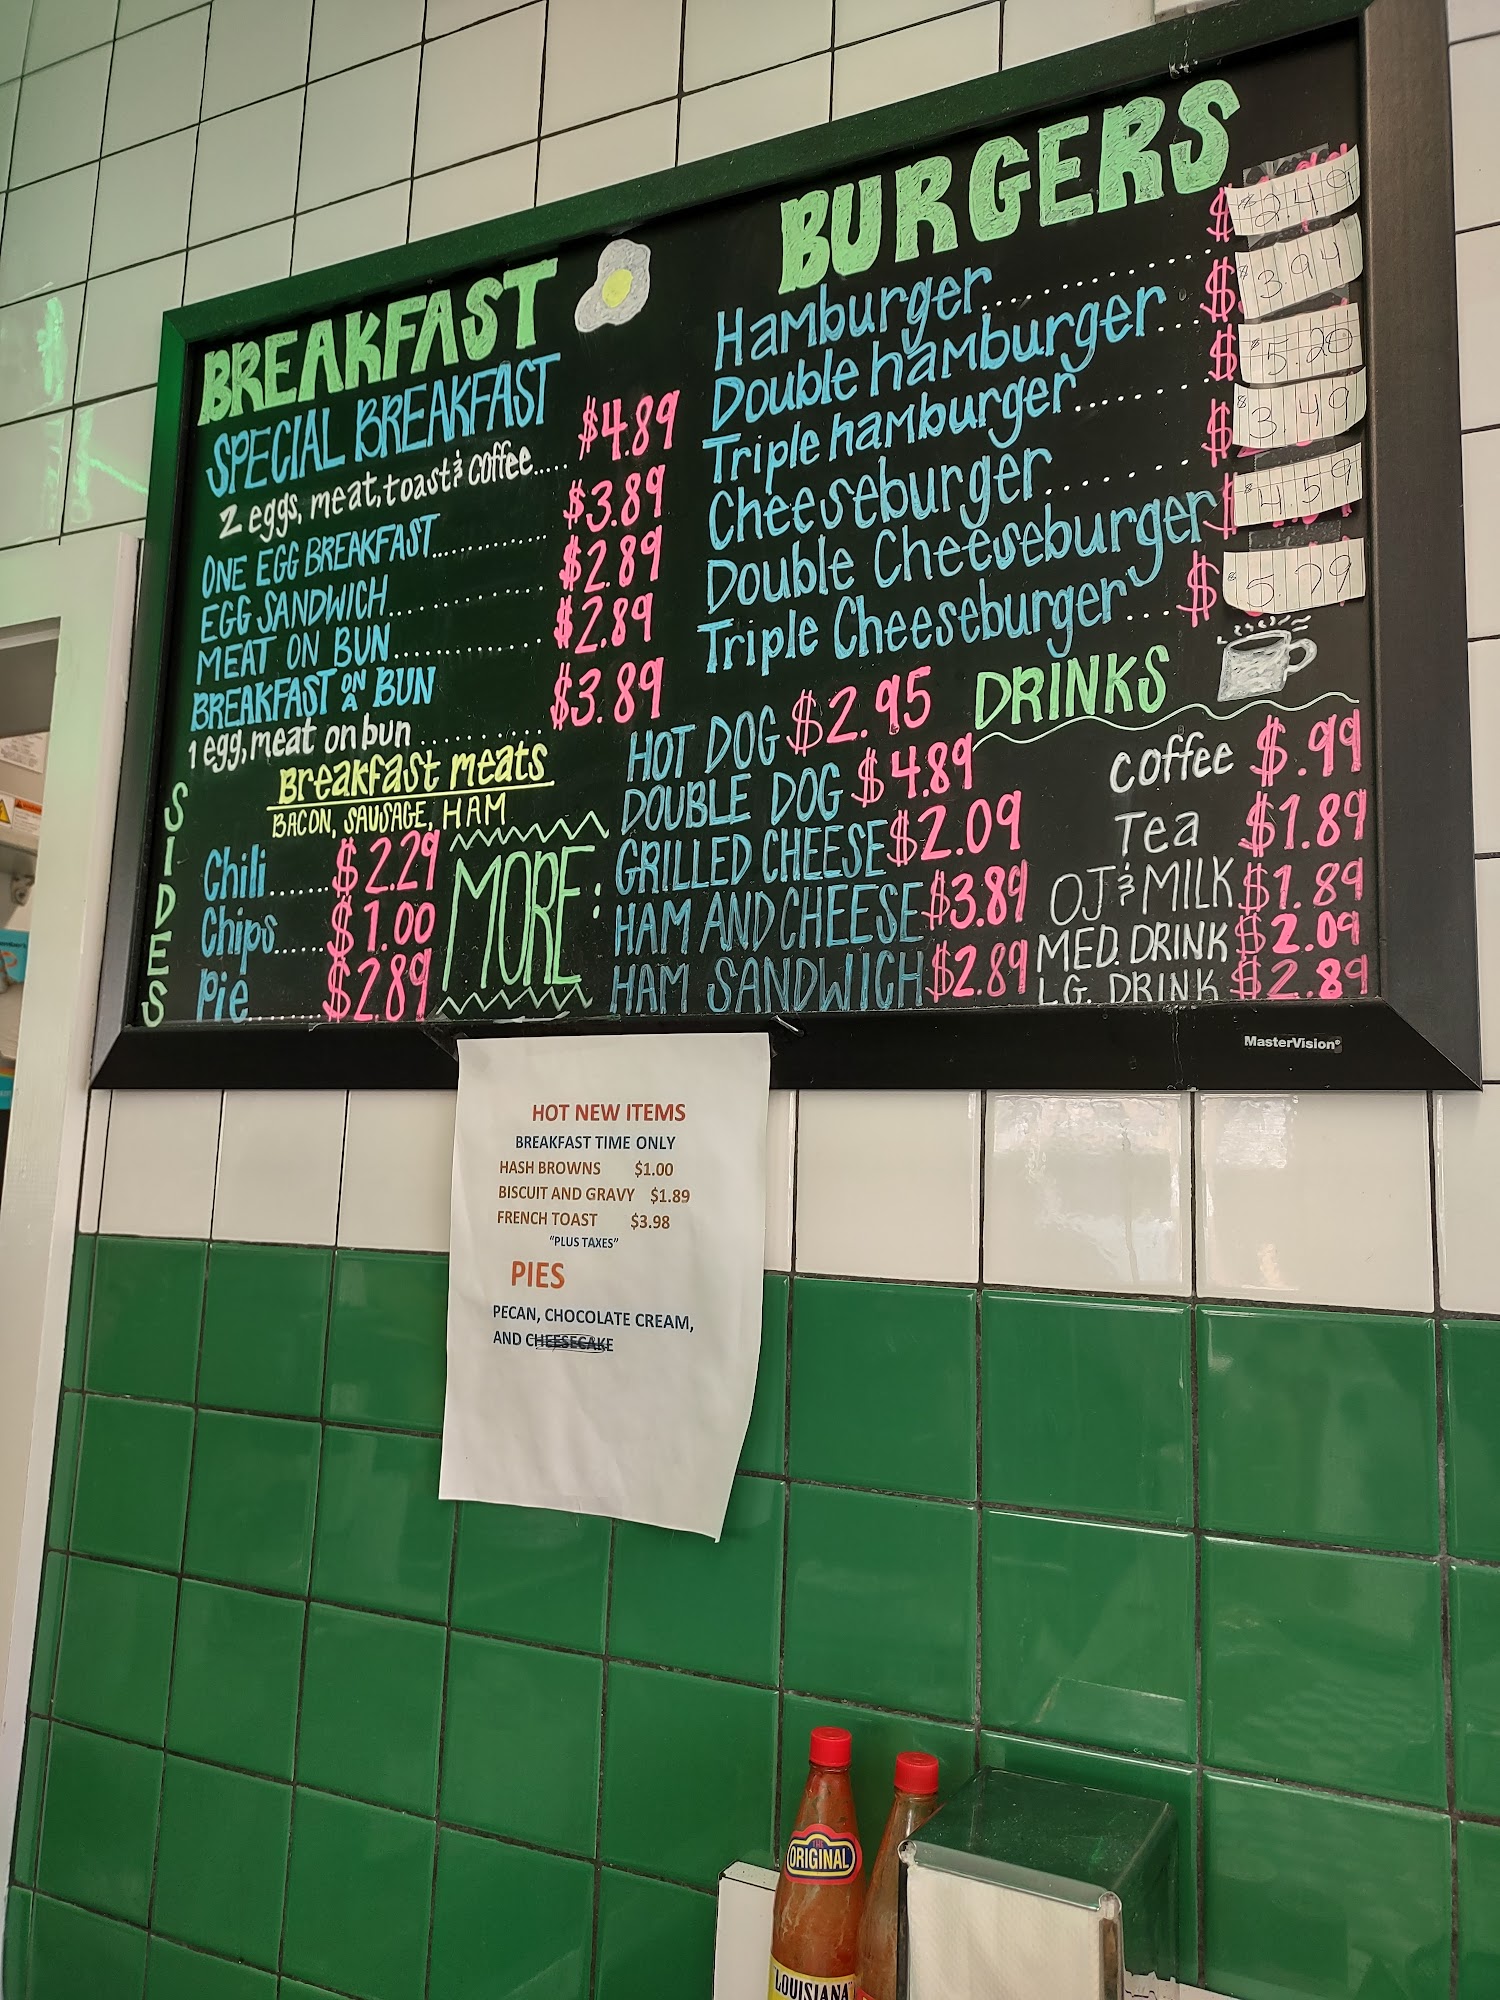 BREAKFAST
SPECIAL BREAKFAST
2 eggs, meat, toast & coffee..... $4.89
ONE EGG BREAKFAST.............. $3.89
EGG SANDWICH.............. $2.89
MEAT ON BUN.............. $2.89
BREAKFAST ON A BUN
1 egg, meat on bun.............. $3.89
Breakfast meats
BACON, SAUSAGE, HAM
SIDES
Chili....... $2.29
Chips...... $1.00
Pie......... $2.89
BURGERS
Hamburger.......... $ $2.49
Double hamburger... $ $3.94
Triple hamburger...... $ $5.20
Cheeseburger....... $ $3.49
Double Cheeseburger $ $4.59
Triple Cheeseburger... $ $5.79
MORE:
HOT DOG $2.95
DOUBLE DOG $4.89
GRILLED CHEESE $2.09
HAM AND CHEESE $3.89
HAM SANDWICH $2.89
DRINKS
coffee $.99
Tea $1.89
OJ & MILK $1.89
MED. DRINK $2.09
LG. DRINK $2.89
MasterVision®
HOT NEW ITEMS
BREAKFAST TIME ONLY
HASH BROWNS $1.00
BISCUIT AND GRAVY $1.89
FRENCH TOAST $3.98
"PLUS TAXES"
PIES
PECAN, CHOCOLATE CREAM,
AND CHEESECAKE
THE
ORIGINAL
"LOUISIANA"